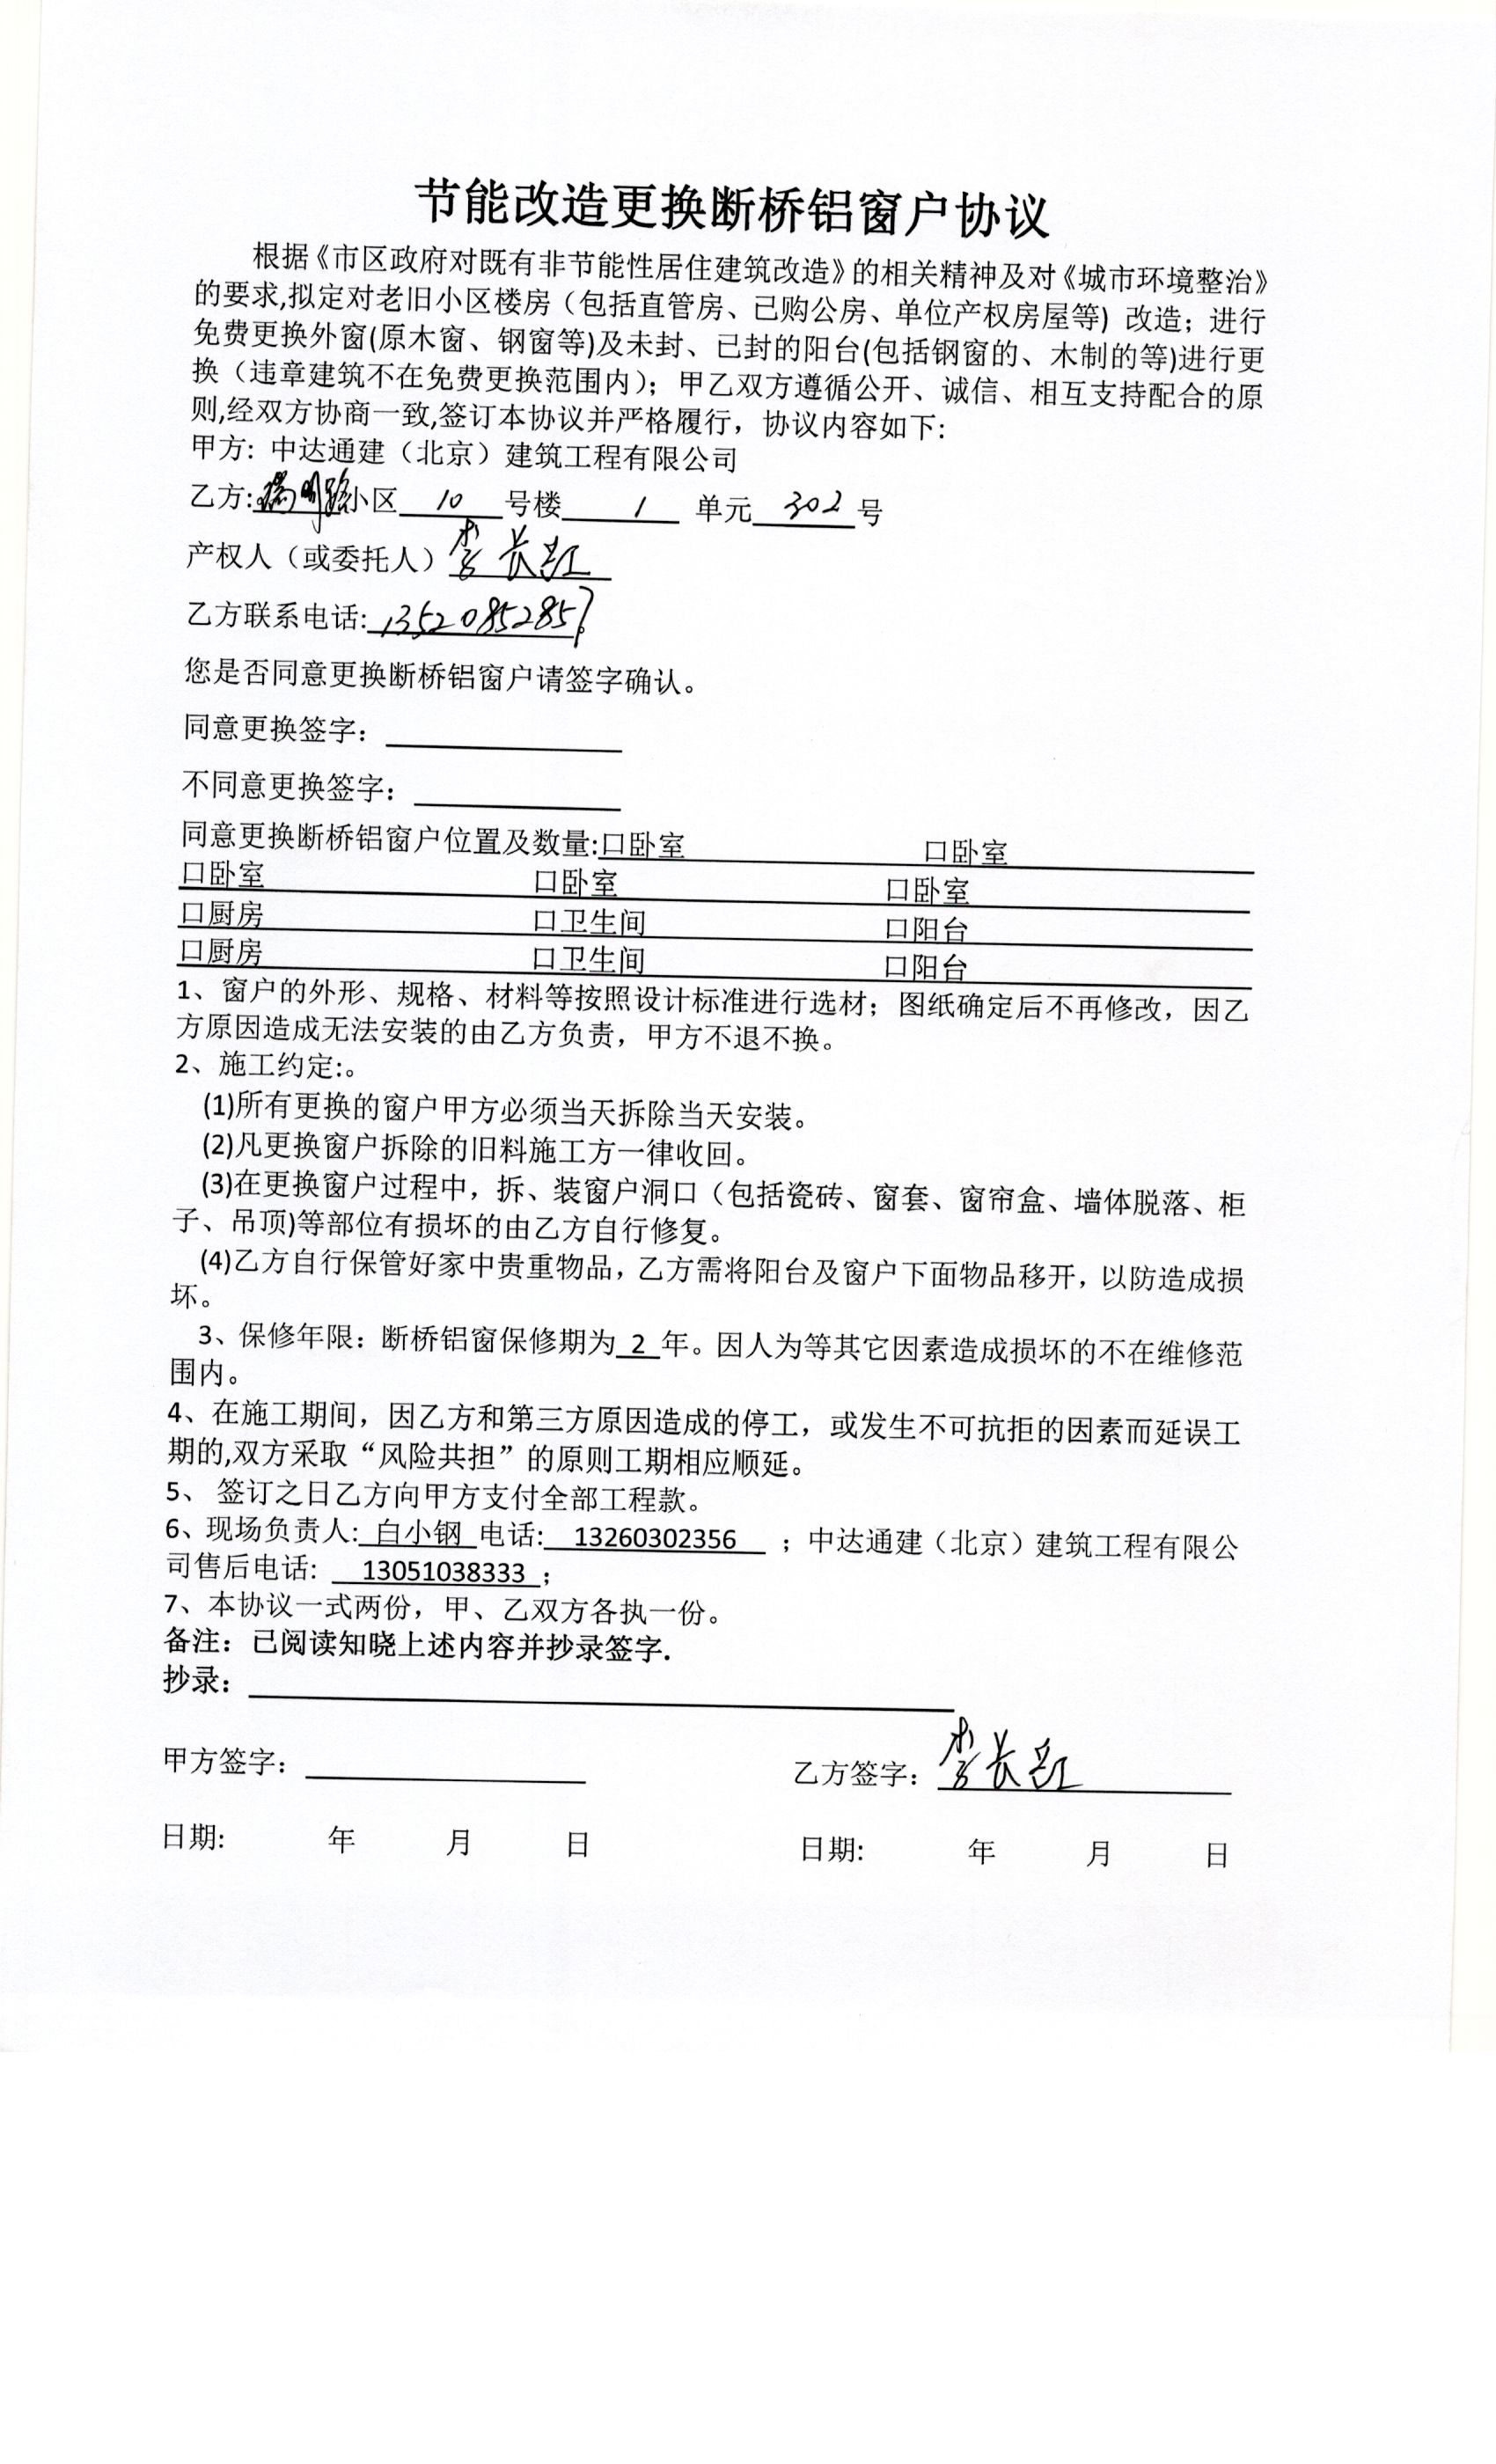 节能改造更换断桥铝窗户协议
根据《市区政府对既有非节能性居住建筑改造》的相关精神及对《城市环境整治》
的要求,拟定对老旧小区楼房（包括直管房、已购公房、单位产权房屋等) 改造；进行
免费更换外窗(原木窗、钢窗等)及未封、已封的阳台(包括钢窗的、木制的等)进行更
换（违章建筑不在免费更换范围内）；甲乙双方遵循公开、诚信、相互支持配合的原
则,经双方协商一致,签订本协议并严格履行，协议内容如下:
甲方: 中达通建（北京）建筑工程有限公司
乙方: 小区 10 号楼 1 单元 302 号
产权人（或委托人）李长
乙方联系电话: 13520852857
您是否同意更换断桥铝窗户请签字确认。
同意更换签字：
不同意更换签字：
同意更换断桥铝窗户位置及数量:口卧室 口卧室
口卧室 口卧室 口卧室
口厨房 口卫生间 口阳台
口厨房 口卫生间 口阳台
1、窗户的外形、规格、材料等按照设计标准进行选材；图纸确定后不再修改，因乙
方原因造成无法安装的由乙方负责，甲方不退不换。
2、施工约定:。
(1)所有更换的窗户甲方必须当天拆除当天安装。
(2)凡更换窗户拆除的旧料施工方一律收回。
(3)在更换窗户过程中，拆、装窗户洞口（包括瓷砖、窗套、窗帘盒、墙体脱落、柜
子、吊顶)等部位有损坏的由乙方自行修复。
(4)乙方自行保管好家中贵重物品，乙方需将阳台及窗户下面物品移开，以防造成损
坏。
3、保修年限：断桥铝窗保修期为 2 年。因人为等其它因素造成损坏的不在维修范
围内。
4、在施工期间，因乙方和第三方原因造成的停工，或发生不可抗拒的因素而延误工
期的,双方采取“风险共担”的原则工期相应顺延。
5、 签订之日乙方向甲方支付全部工程款。
6、现场负责人: 白小钢 电话: 13260302356 ；中达通建（北京）建筑工程有限公
司售后电话: 13051038333 ；
7、本协议一式两份，甲、乙双方各执一份。
备注：已阅读知晓上述内容并抄录签字.
抄录：
甲方签字： 乙方签字：李长
日期: 年 月 日 日期: 年 月 日